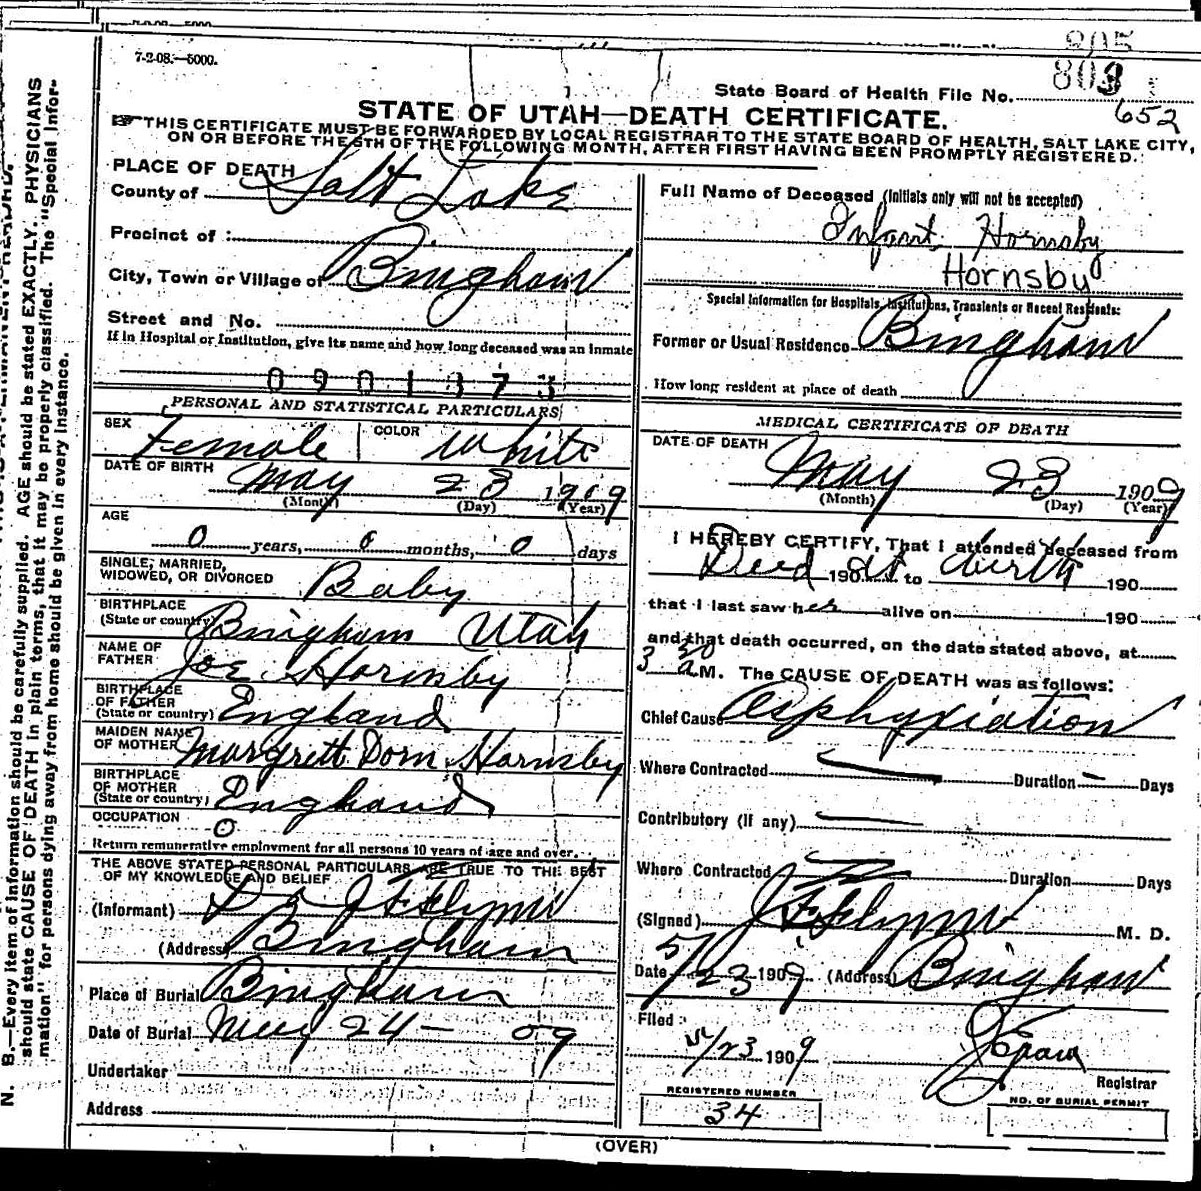 7-2-08.—5000.
805
803
State Board of Health File No.
652
STATE OF UTAH—DEATH CERTIFICATE.
THIS CERTIFICATE MUST BE FORWARDED BY LOCAL REGISTRAR TO THE STATE BOARD OF HEALTH, SALT LAKE CITY,
ON OR BEFORE THE 5TH OF THE FOLLOWING MONTH, AFTER FIRST HAVING BEEN PROMPTLY REGISTERED.
PLACE OF DEATH
County of Salt Lake
Precinct of :
City, Town or Village of Bingham
Street and No.
If in Hospital or Institution, give its name and how long deceased was an inmate
0901373
PERSONAL AND STATISTICAL PARTICULARS
SEX Female COLOR White
DATE OF BIRTH May 23 1909
(Month) (Day) (Year)
AGE
0 years, 0 months, 0 days
SINGLE, MARRIED,
WIDOWED, OR DIVORCED Baby
BIRTHPLACE
(State or country) Bingham Utah
NAME OF
FATHER Joe Hornsby
BIRTHPLACE
OF FATHER
(State or country) England
MAIDEN NAME
OF MOTHER Margrett Dorn Hornsby
BIRTHPLACE
OF MOTHER
(State or country) England
OCCUPATION
0
Return remunerative employment for all persons 10 years of age and over.
THE ABOVE STATED PERSONAL PARTICULARS ARE TRUE TO THE BEST
OF MY KNOWLEDGE AND BELIEF
(Informant) Dr J F Flynn
(Address) Bingham
Place of Burial Bingham
Date of Burial May 24 - 09
Undertaker
Address
Full Name of Deceased (Initials only will not be accepted)
Infant Hornsby
Hornsby
Special Information for Hospitals, Institutions, Transients or Recent Residents:
Former or Usual Residence Bingham
How long resident at place of death
MEDICAL CERTIFICATE OF DEATH
DATE OF DEATH May 23 1909
(Month) (Day) (Year)
I HEREBY CERTIFY, That I attended deceased from
Dead 190 at to birth 190
that I last saw her alive on 190
and that death occurred, on the date stated above, at
3 30 a M. The CAUSE OF DEATH was as follows:
Chief Cause Asphyxiation
Where Contracted Duration Days
Contributory (if any)
Where Contracted Duration Days
(Signed) J F Flynn M. D.
Date 5/23 1909 (Address) Bingham
Filed
5/23 1909
Registrar
REGISTERED NUMBER
34
NO. OF BURIAL PERMIT
(OVER)
N. B.—Every item of information should be carefully supplied. AGE should be stated EXACTLY. PHYSICIANS
should state CAUSE OF DEATH in plain terms, that it may be properly classified. The "Special Infor-
mation" for persons dying away from home should be given in every instance.